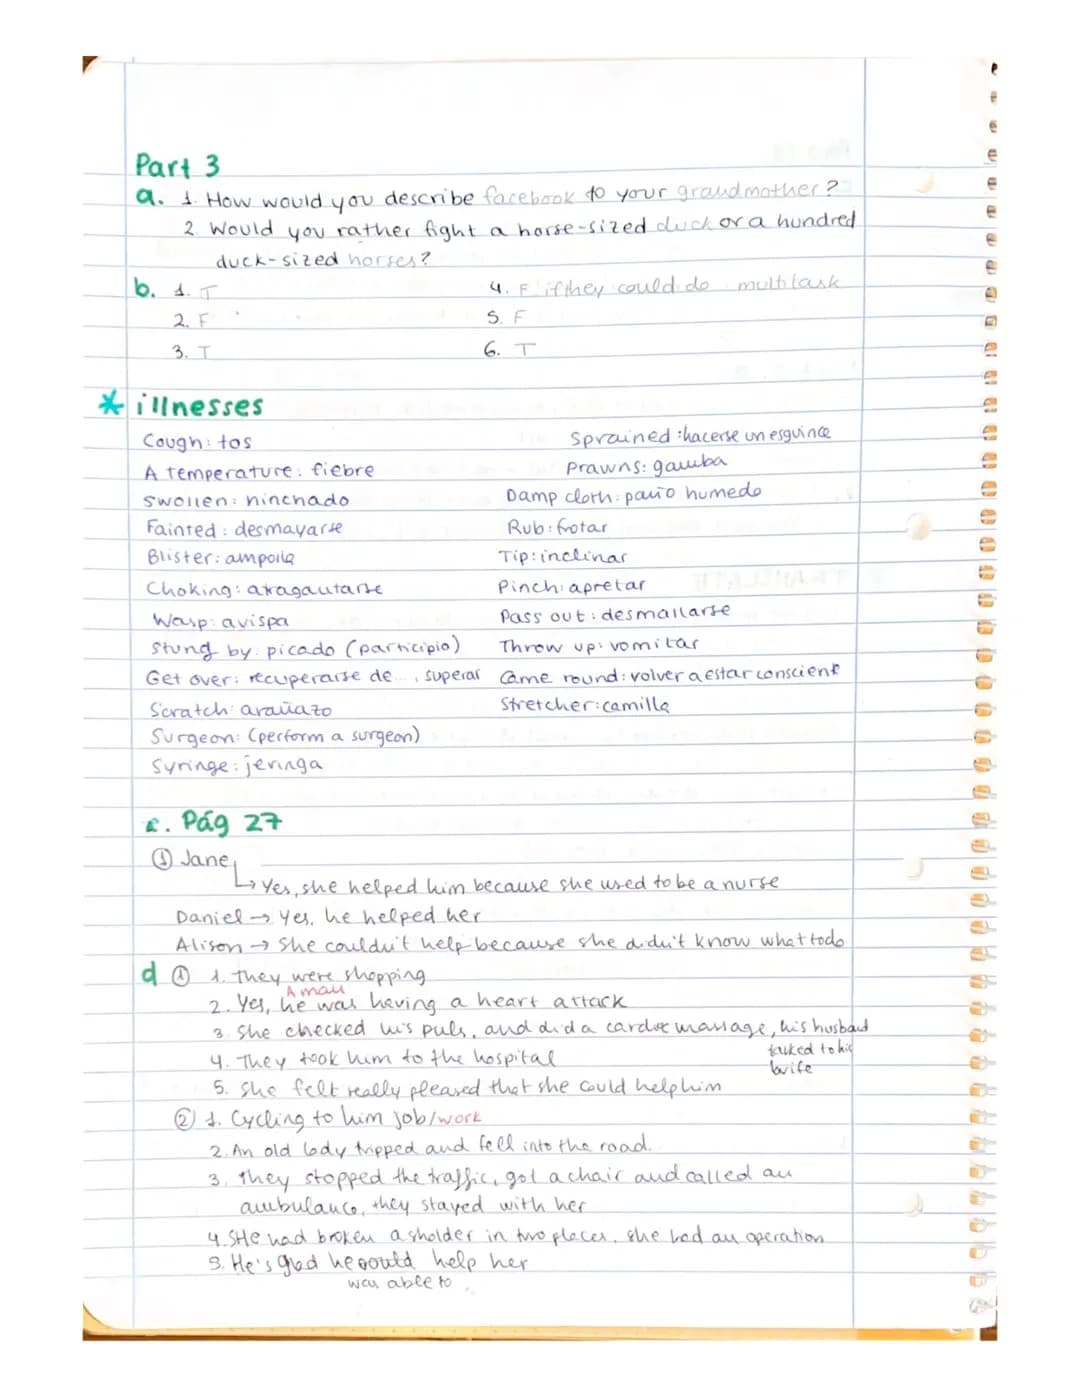 Part 3
a. 1. How would you describe facebook to your grandmother?
2. Would you rather fight a horse-sized duck or a hundred
duck-sized horses?
b. 1. T
4. F if they could do multitask
2. F
5. F
3. T
6. T
* illnesses
Cough: tos
Sprained: hacerse un esguince
A temperature: fiebre
Prawns: gamba
Swollen: hinchado
Damp cloth: paño humedo
Fainted: desmayarse
Rub: frotar
Blister: ampolla
Tip: inclinar
Choking: atragantarse
Pinch: apretar
Wasp: avispa
Pass out: desmallarse
Stung by: picado (participio)
Throw up: vomitar
Get over: recuperarse de..., superar
Came round: volver a estar conscient
Scratch: arañazo
Stretcher: camilla
Surgeon: (perform a surgeon)
Syringe: jeringa
c. Pág 27
① Jane
↳ Yes, she helped him because she used to be a nurse
Daniel → Yes, he helped her
Alison → She couldn't help because she didn't know what todo
d ① 1. they were shopping
A man
2. Yes, he was having a heart attack
3. She checked his puls, and did a cardiac massage, his husband
talked to his
wife
4. They took him to the hospital
5. She felt really pleased that she could help him
② 1. Cycling to him job/work
2. An old lady tripped and fell into the road.
3. They stopped the traffic, got a chair and called an
ambulance, they stayed with her
4. SHe had broken a sholder in two places. she had an operation
5. He's glad he could help her
was able to